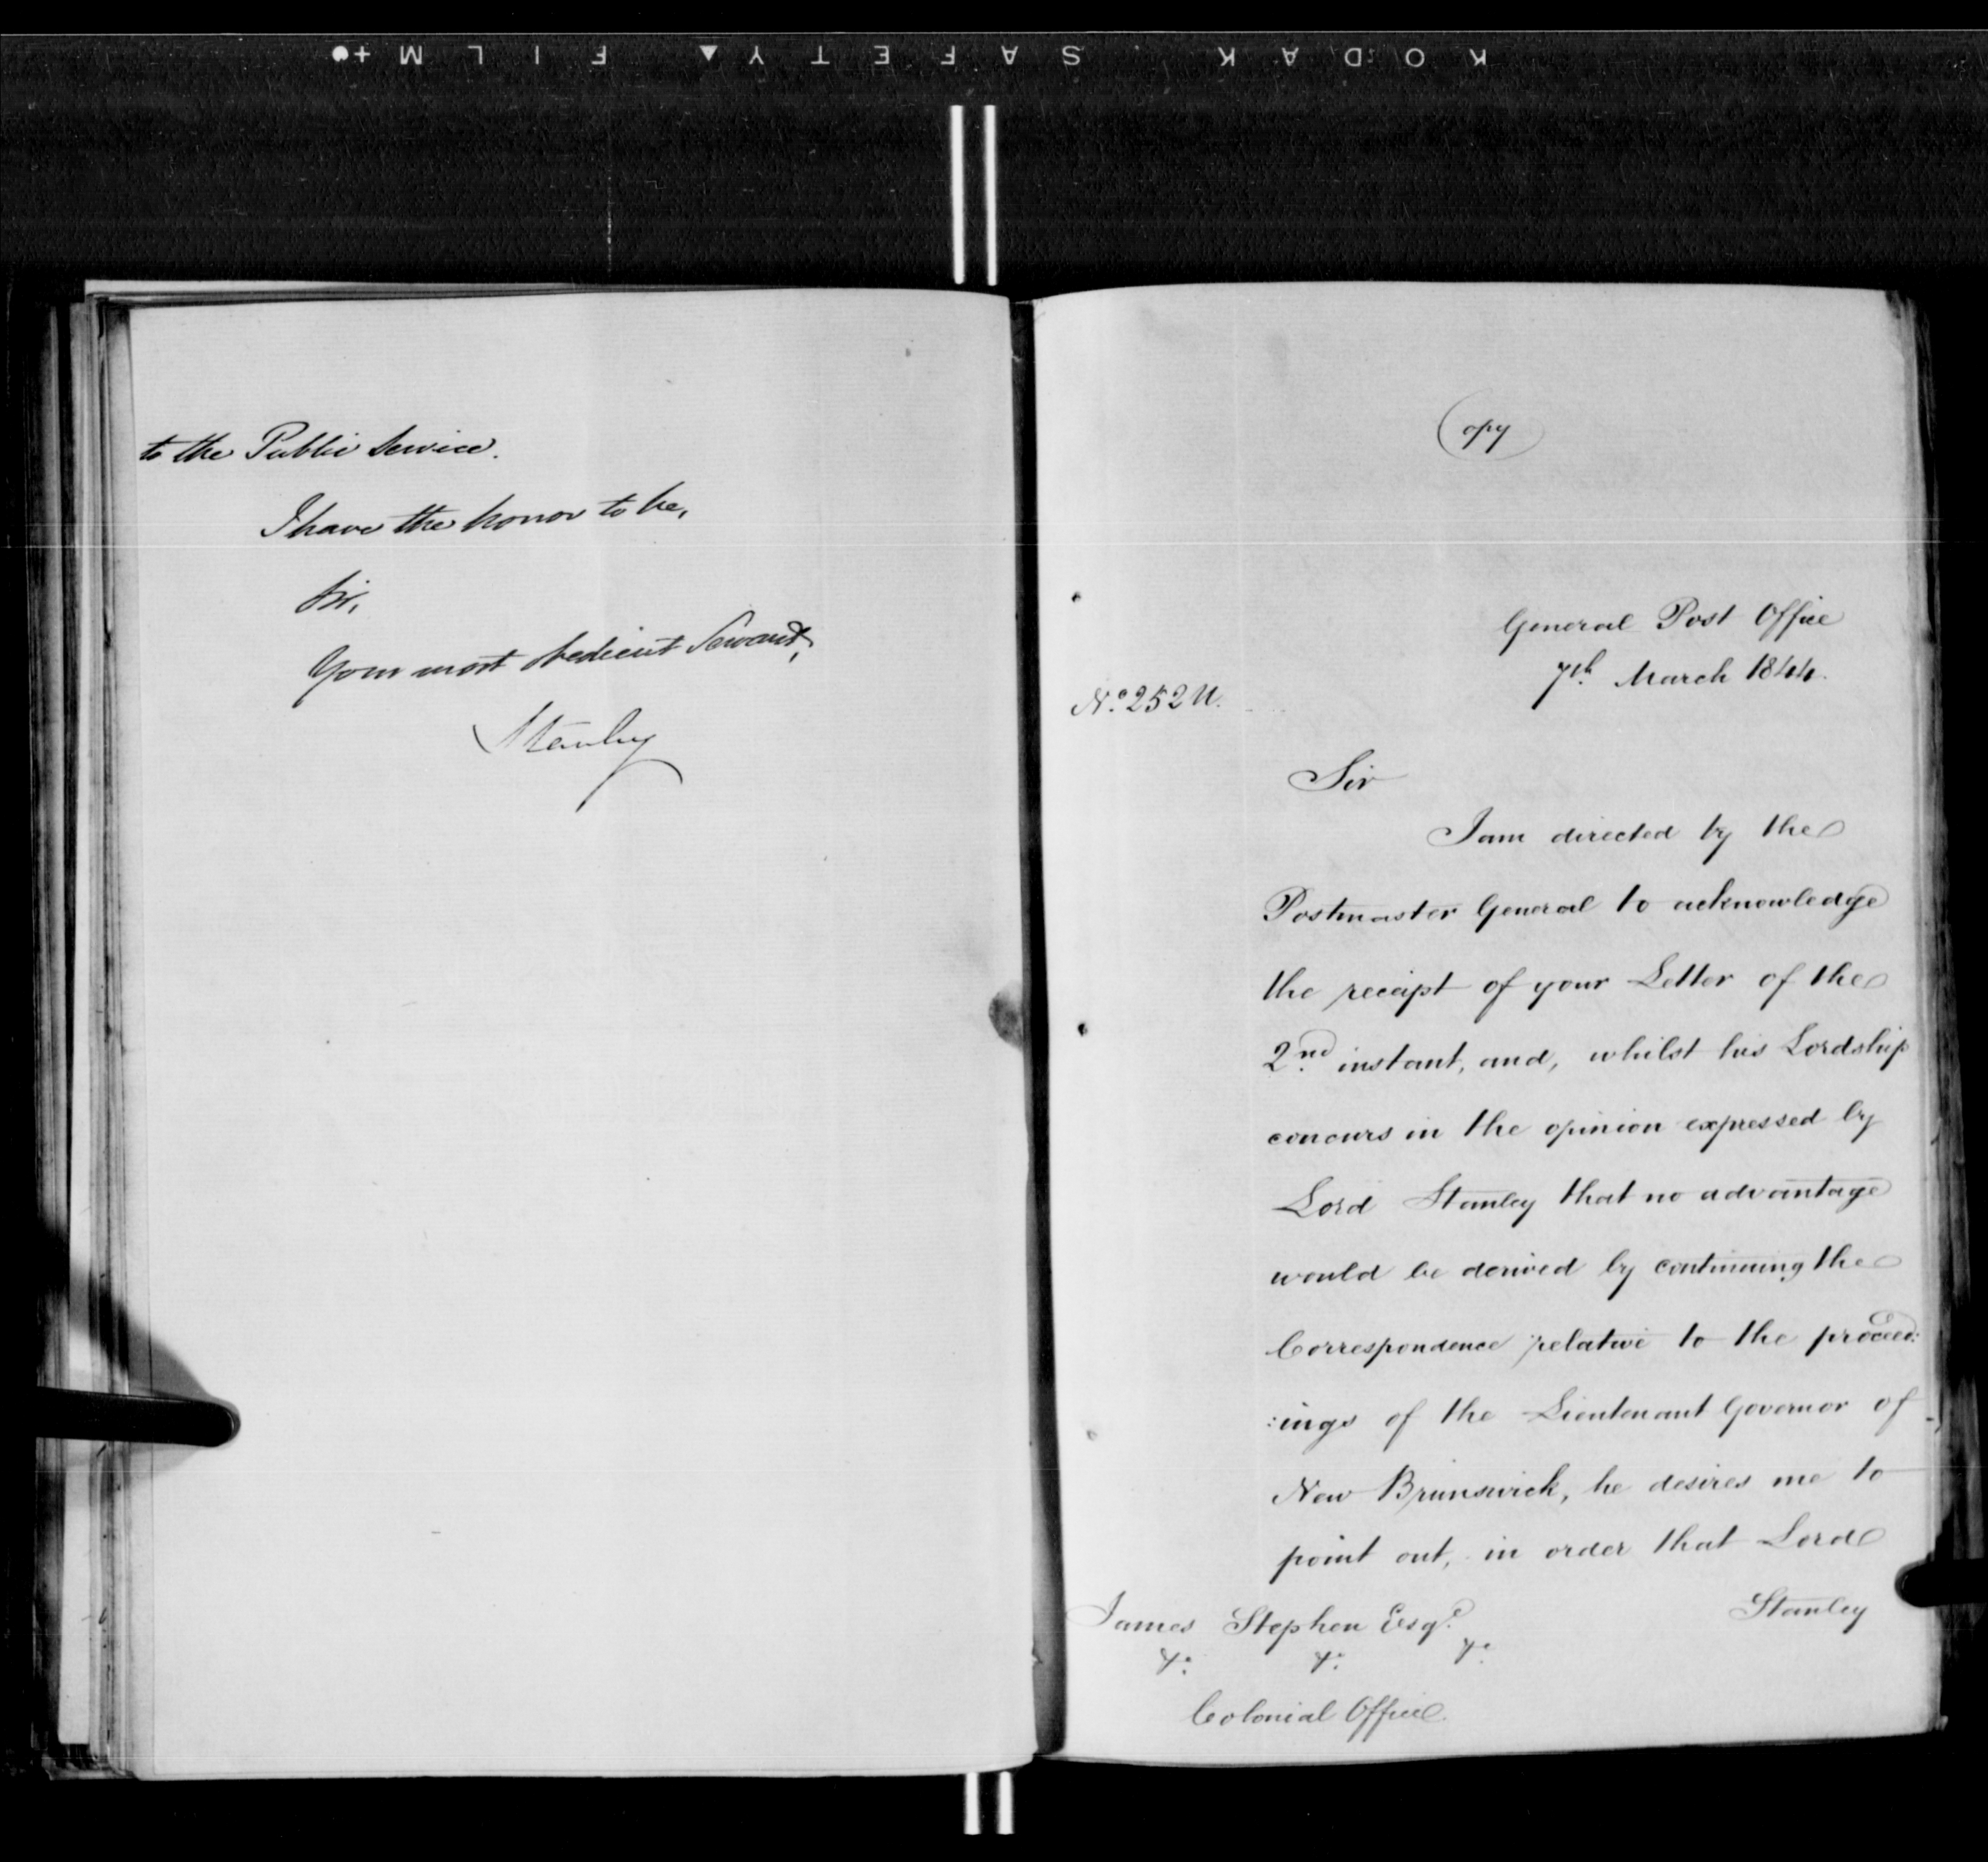 KODAK SAFETY▲ FILM +●
to the Public Service.
I have the honor to be,
Sir,
Your most obedient Servant,
Stanley
Copy
General Post Office
7th. March 1844.
No. 252 U.
Sir
I am directed by the
Postmaster General to acknowledge
the receipt of your Letter of the
2nd. instant, and, whilst his Lordship
concurs in the opinion expressed by
Lord Stanley that no advantage
would be derived by continuing the
Correspondence relative to the proceed:
:ings of the Lieutenant Governor of
New Brunswick, he desires me to
point out, in order that Lord
Stanley
James Stephen Esqre.
&c. &c. &c.
Colonial Office